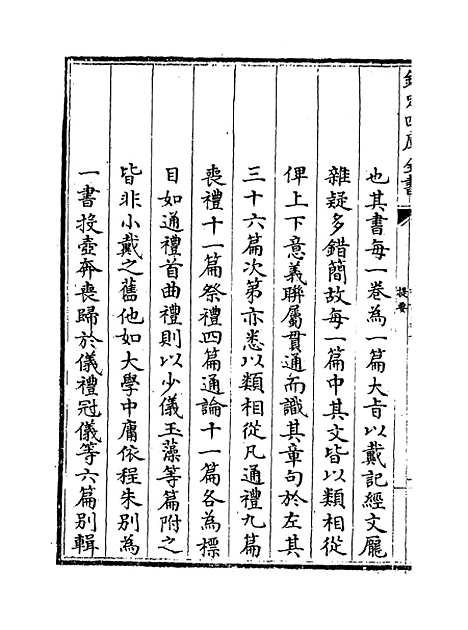 欽定四庫全書
提要
也其書每一卷為一篇大旨以戴記經文龐
雜疑多錯簡故每一篇中其文皆以類相從
俾上下意義聯屬貫通而識其章句於左其
三十六篇次第亦悉以類相從凡通禮九篇
喪禮十一篇祭禮四篇通論十一篇各為標
目如通禮首曲禮則以少儀玉藻等篇附之
皆非小戴之舊他如大學中庸依程朱別為
一書投壺奔喪歸於儀禮冠儀等六篇別輯